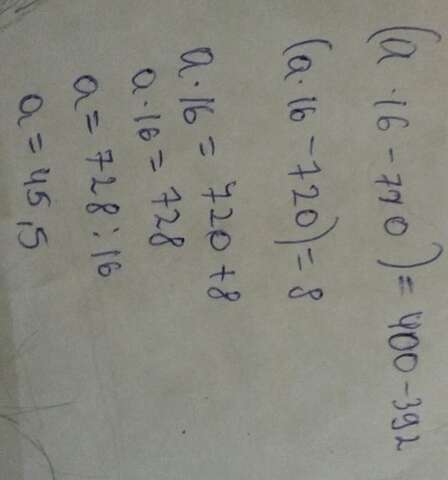 (a · 16 - 770) = 400 - 392
(a · 16 - 720) = 8
a · 16 = 720 + 8
a · 16 = 728
a = 728 : 16
a = 45,5